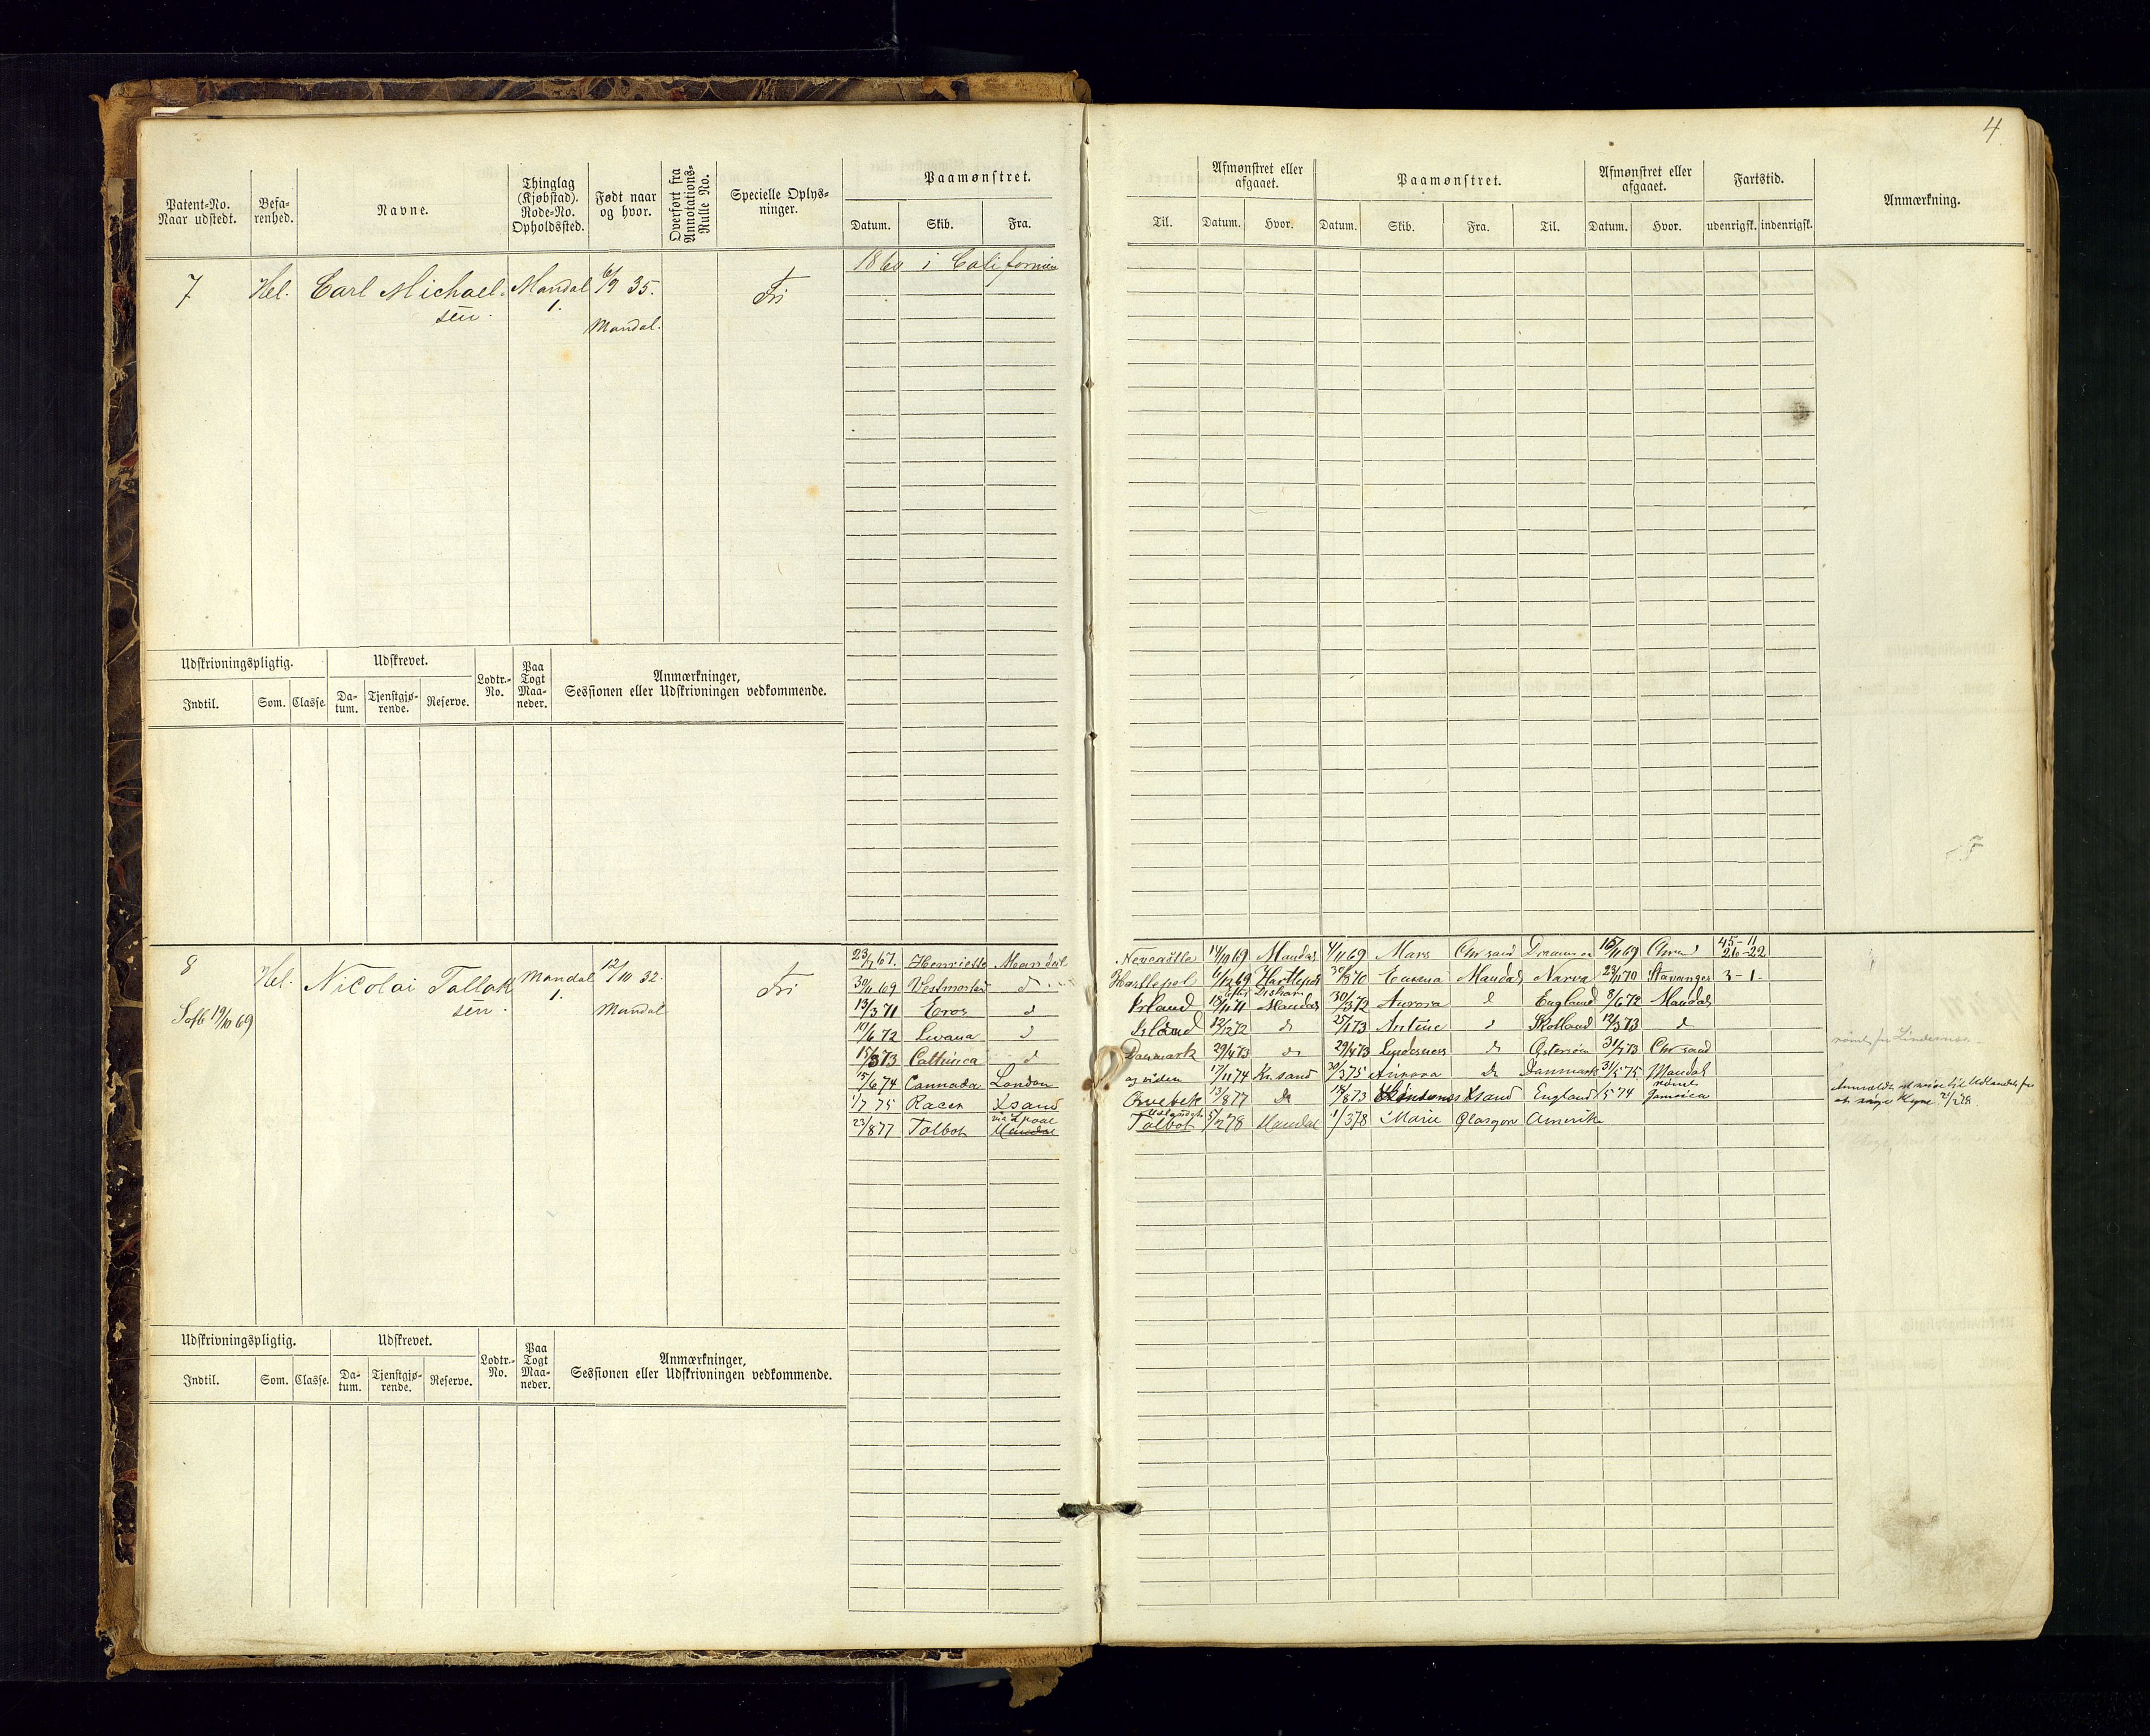 4
Patent-No. Naar udstedt.
Befarenhed.
Navne.
Thinglag (Kjøbstad). Rode-No. Opholdssted.
Født naar og hvor.
Overført fra Annotations-Rulle No.
Specielle Oplysninger.
Paamønstret.
Datum. Skib. Fra.
Til.
Afmønstret eller afgaaet.
Datum. Hvor.
Paamønstret.
Datum. Skib. Fra. Til.
Afmønstret eller afgaaet.
Datum. Hvor.
Fartstid.
udenrigsk. indenrigsk.
Anmærkning.
1860 i Californien
7 Hel. Carl Michael- Mandal 6/9 35. Fri
sen. 1. Mandal.
Udskrivningspligtig. Udskrevet. Lodtr.-No. Paa Togt Maaneder. Anmærkninger, Sessionen eller Udskrivningen vedkommende.
Indtil. Som. Classe. Datum. Tjenstgjørende. Reserve.
8 Hel. Nicolai Tallak Mandal 12/10 32. Fri
sen. 1. Mandal
Sofb 19/10 69
23/7 67. Henriette Mandal Newcastle 14/10 69 Mandal 4/11 69 Mars Chrsand Drammen 16/11 69 Chrsand 45-11
26-22
30/11 69 Vestmorland d Hartlepol 6/12 69 Hartlepol 30/8 70 Emma Mandal Narva 23/11 70 Stavanger 3-1-
13/3 71 Eros d Irland 18/11 71 Mandal 30/3 72 Aurora d England 8/6 72 Mandal
d Island 12/12 72 d 25/1 73 d Skotland 12/3 73 d
15/3 73 Cathinca d Danmark 29/4 73 d 29/4 73 Lyndesnes d Østersøen 31/7 73 Chrsand
15/6 74 Cannada London og viden 17/11 74 Kr.sand 30/3 75 Aurora d Danmark 31/5 75 Mandal
1/7 75 Racer Xsand Qvebek 13/8 77 d Xsand England Jamaica
via
23/8 77 Talbot Mandal Talbot 5/2 78 Mandal 1/3 78 Marie Glasgow Amerika
Udskrivningspligtig. Udskrevet. Lodtr.-No. Paa Togt Maaneder. Anmærkninger, Sessionen eller Udskrivningen vedkommende.
Indtil. Som. Classe. Datum. Tjenstgjørende. Reserve.